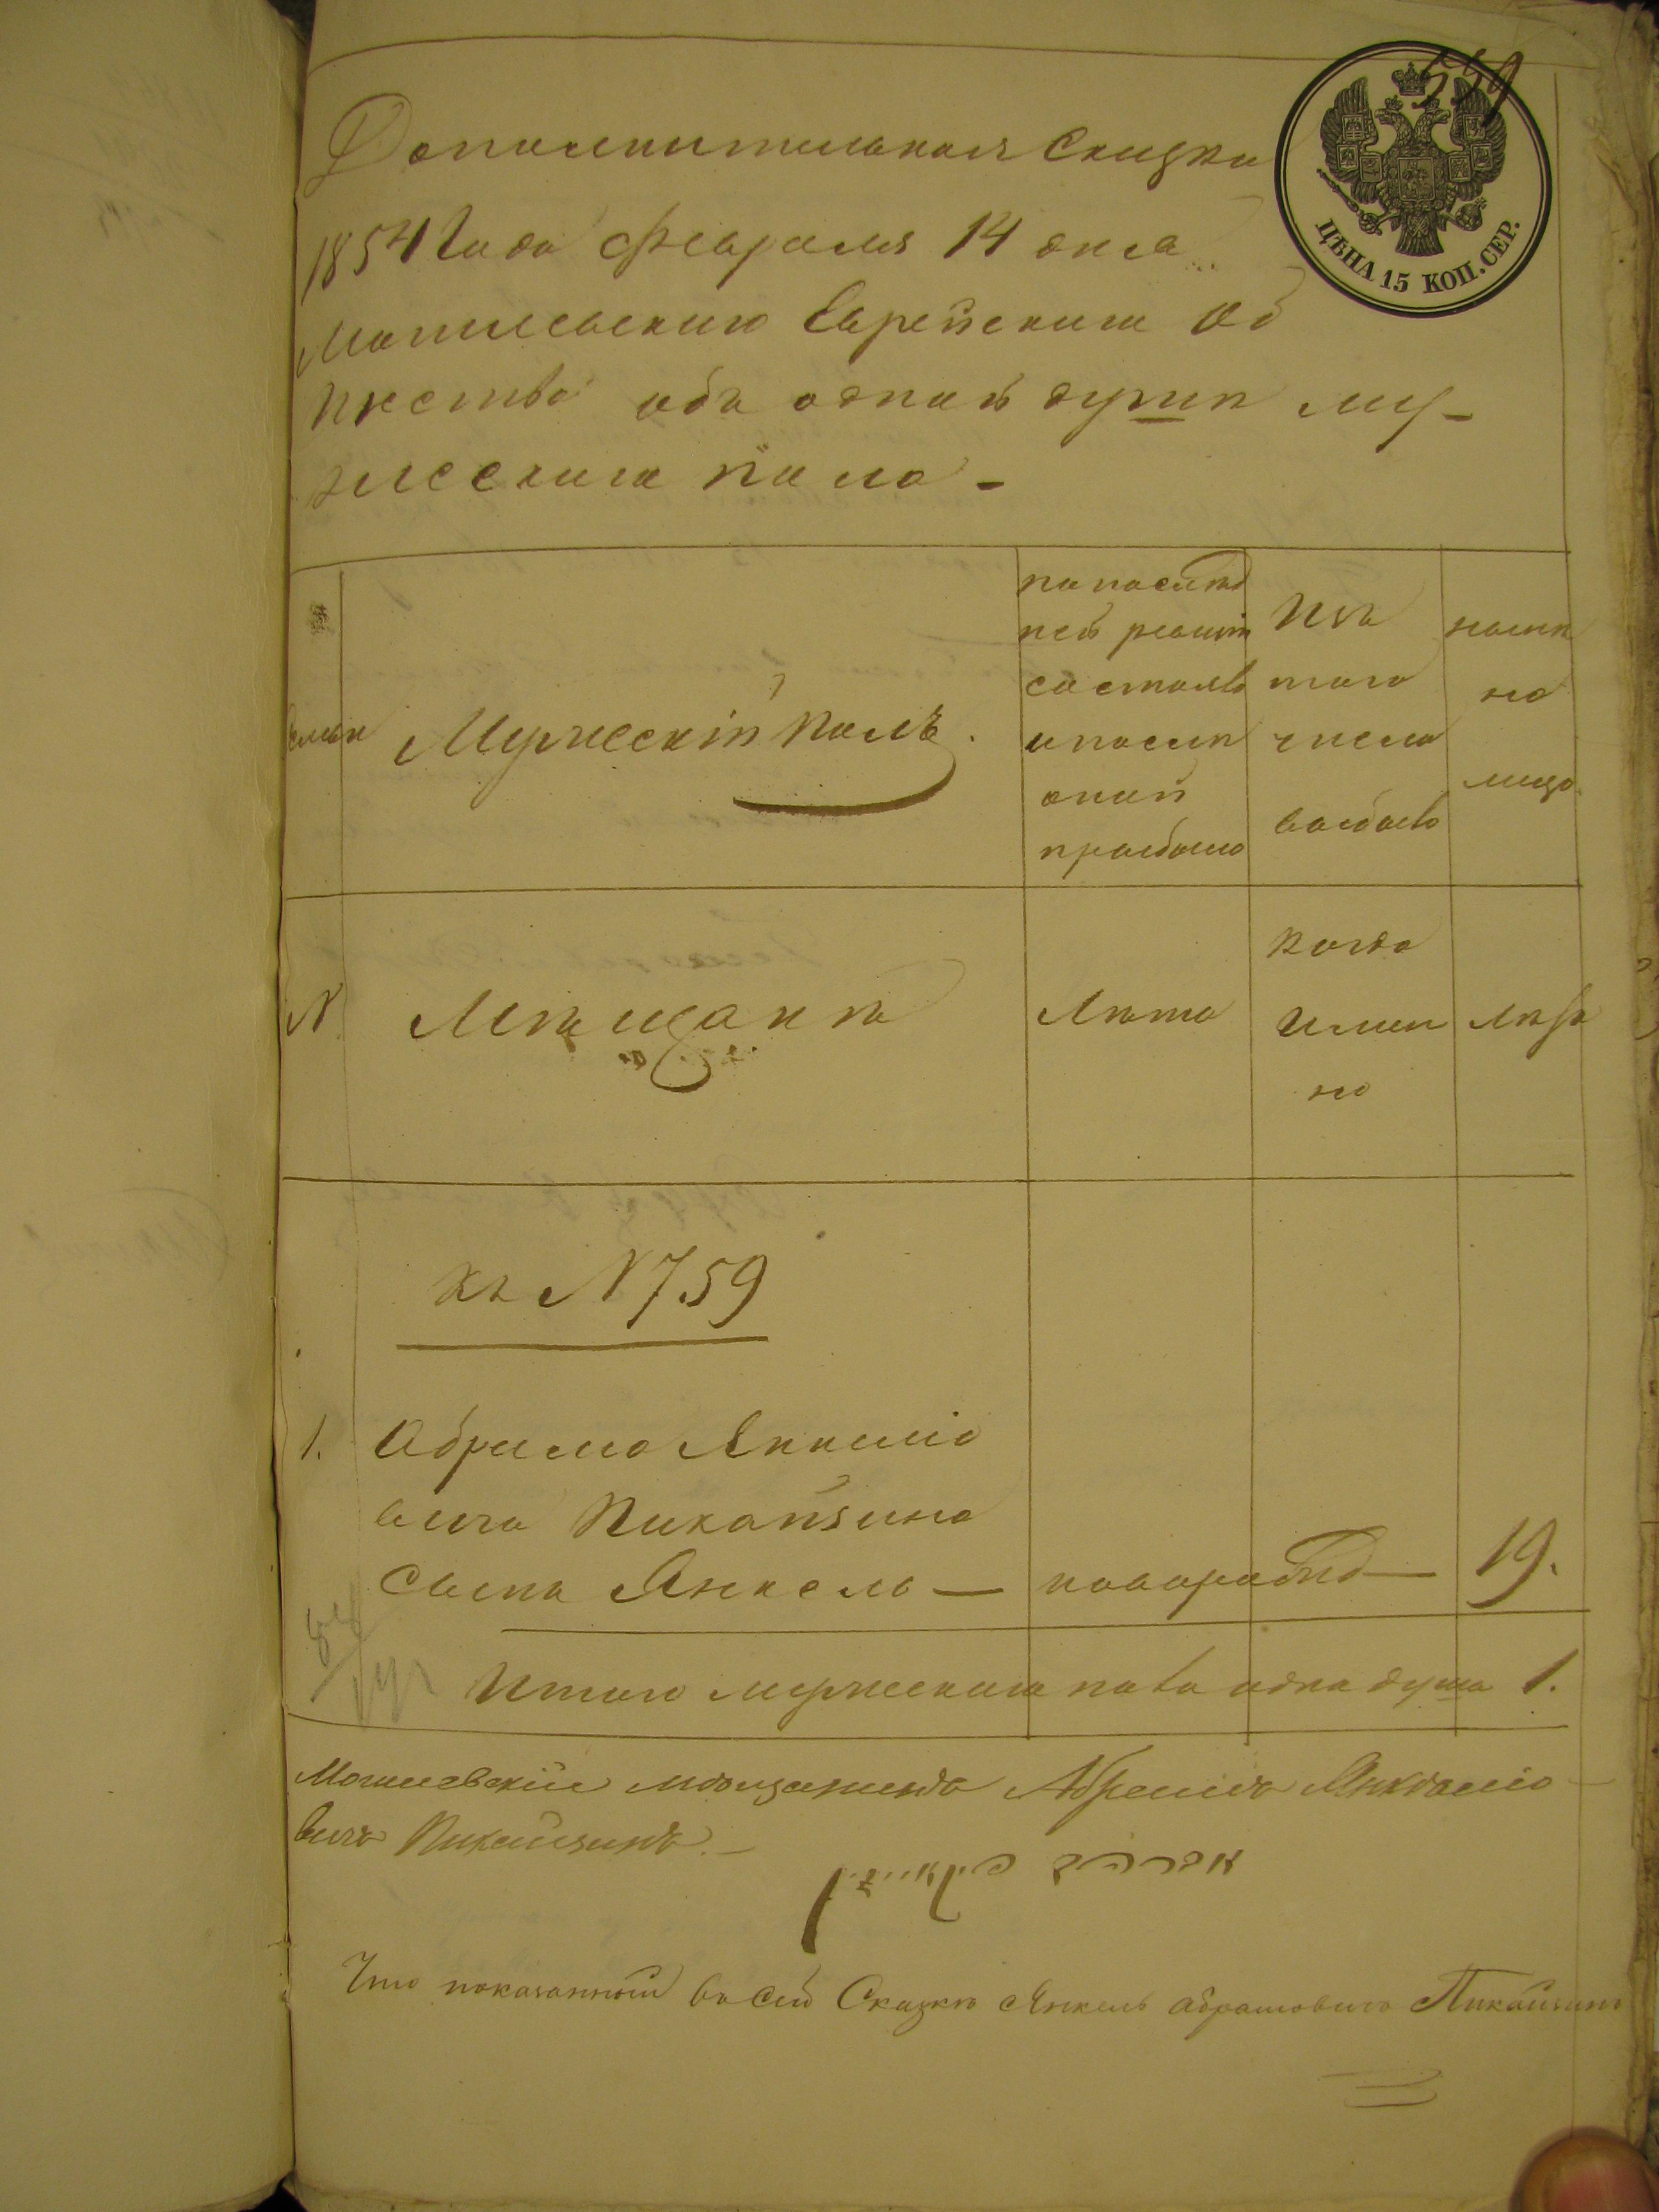 559
ЦѢНА 15 КОП. СЕР.
Дополнительная Скаска
1854 Года Февраля 14 дня
Могилевскаго Еврейскаго об
щества объ одной душѣ му-
жескаго пола -
Мужескій полъ.
по послѣд
ней ревизіи
состояло
и послѣ
оной
прибыло
Изъ
того
числа
выбыло
нынѣ
на
лицо
N
Мѣщанъ
Лѣта
Когда
имен
но
Лѣта
къ N 759
1. Абрама Янкеліо
вича Пикайзина
Сынъ Янкель — новорожд — 19.
Итого мужескаго пола одна душа 1.
Могилевскій мѣщанинъ Абрамъ Янкеліо
вичъ Пикайзинъ. -
אברהם פיקאייזין
Что показанный въ сей Сказкѣ Янкель Абрамовичъ Пикайзинъ